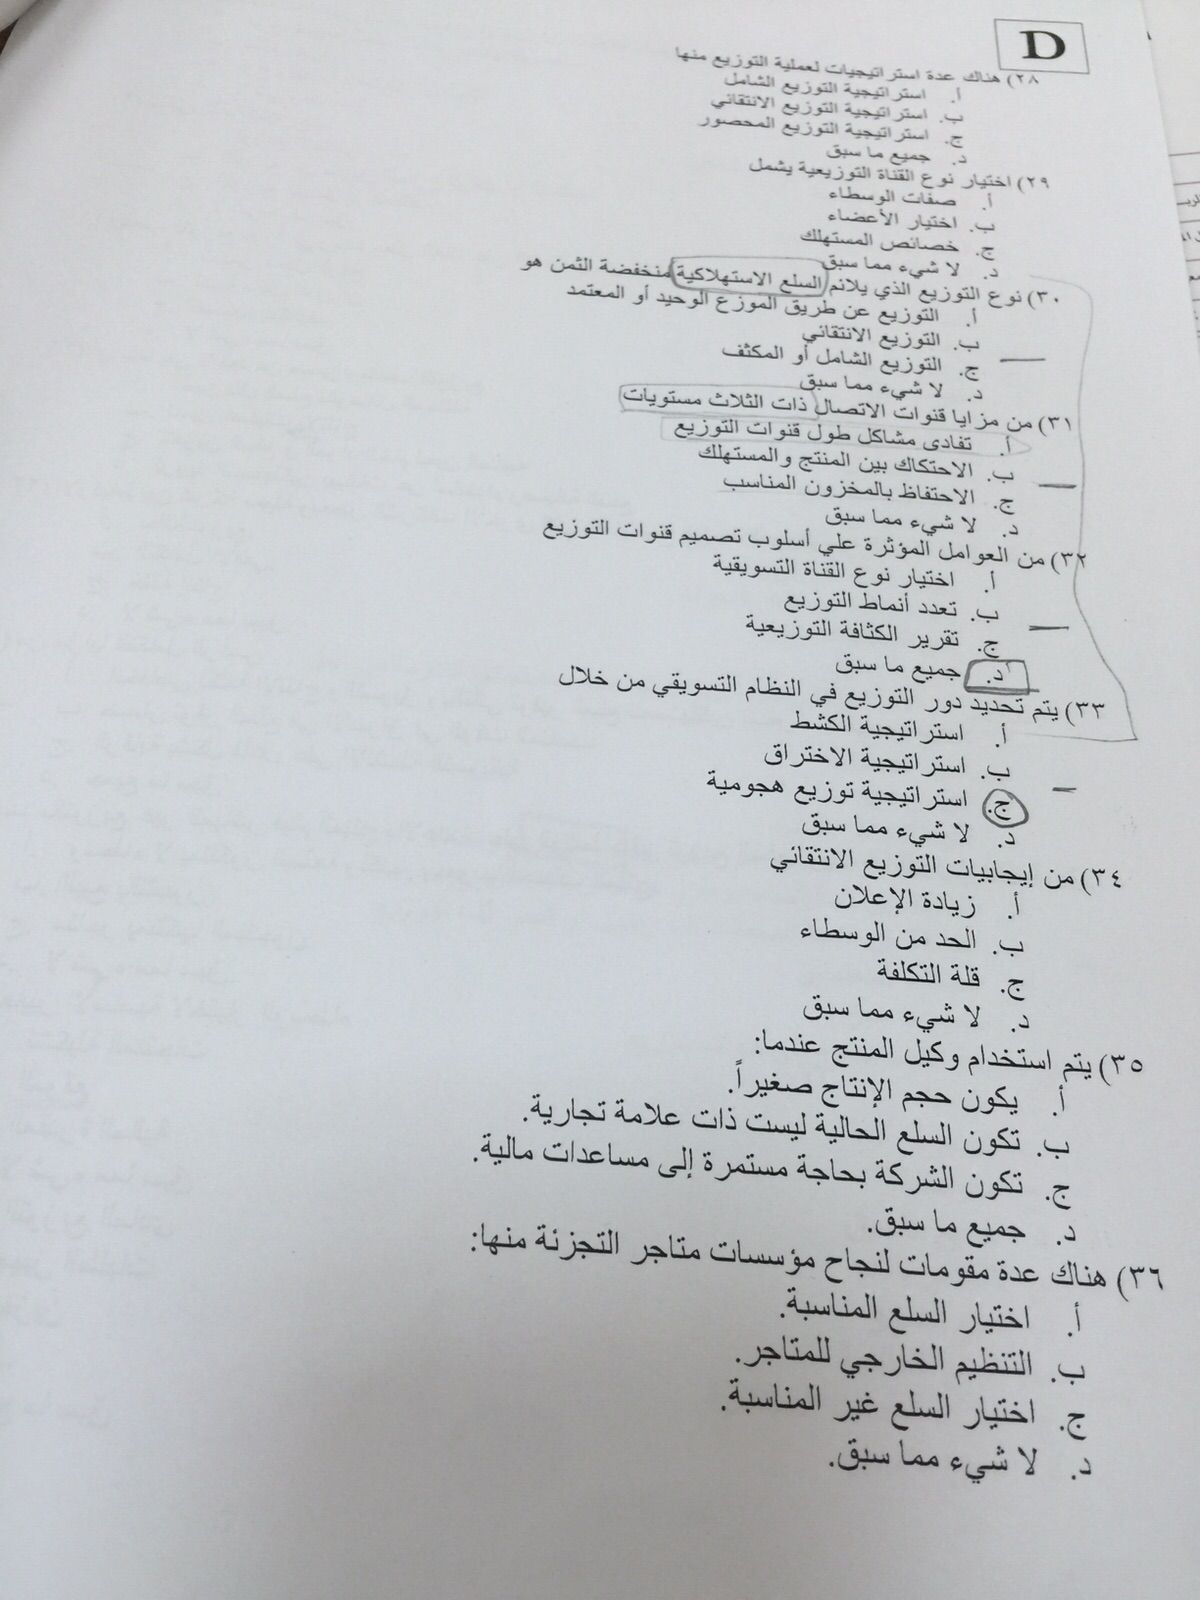 D
٢٨) هناك عدة استراتيجيات لعملية التوزيع منها
أ. استراتيجية التوزيع الشامل
ب. استراتيجية التوزيع الانتقائي
ج. استراتيجية التوزيع المحصور
د. جميع ما سبق
٢٩) اختيار نوع القناة التوزيعية يشمل
أ. صفات الوسطاء
ب. اختيار الأعضاء
ج. خصائص المستهلك
د. لا شيء مما سبق
٣٠) نوع التوزيع الذي يلائم السلع الاستهلاكية منخفضة الثمن هو
أ. التوزيع عن طريق الموزع الوحيد أو المعتمد
ب. التوزيع الانتقائي
ج. التوزيع الشامل أو المكثف
د. لا شيء مما سبق
٣١) من مزايا قنوات الاتصال ذات الثلاث مستويات
أ. تفادى مشاكل طول قنوات التوزيع
ب. الاحتكاك بين المنتج والمستهلك
ج. الاحتفاظ بالمخزون المناسب
د. لا شيء مما سبق
٣٢) من العوامل المؤثرة علي أسلوب تصميم قنوات التوزيع
أ. اختيار نوع القناة التسويقية
ب. تعدد أنماط التوزيع
ج. تقرير الكثافة التوزيعية
د. جميع ما سبق
٣٣) يتم تحديد دور التوزيع في النظام التسويقي من خلال
أ. استراتيجية الكشط
ب. استراتيجية الاختراق
ج. استراتيجية توزيع هجومية
د. لا شيء مما سبق
٣٤) من إيجابيات التوزيع الانتقائي
أ. زيادة الإعلان
ب. الحد من الوسطاء
ج. قلة التكلفة
د. لا شيء مما سبق
٣٥) يتم استخدام وكيل المنتج عندما:
أ. يكون حجم الإنتاج صغيراً.
ب. تكون السلع الحالية ليست ذات علامة تجارية.
ج. تكون الشركة بحاجة مستمرة إلى مساعدات مالية.
د. جميع ما سبق.
٣٦) هناك عدة مقومات لنجاح مؤسسات متاجر التجزئة منها:
أ. اختيار السلع المناسبة.
ب. التنظيم الخارجي للمتاجر.
ج. اختيار السلع غير المناسبة.
د. لا شيء مما سبق.